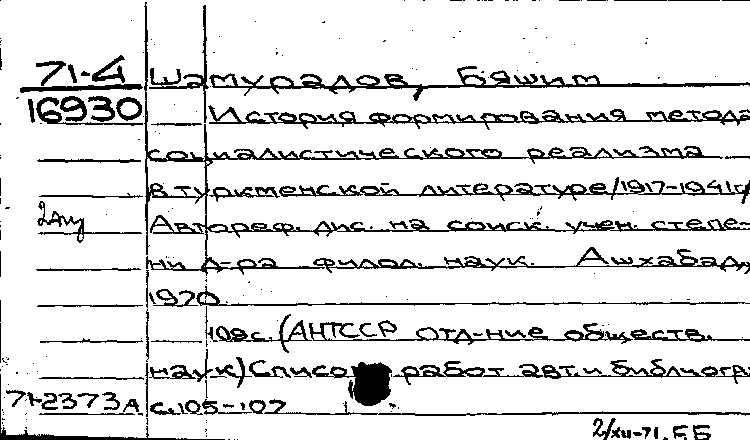 71-4 Шамурадов, Бяшим
16930 История формирования метода
социалистического реализма
в туркменской литературе/1917-1941г/
Автореф. дис. на соиск. учен. степе-
ни д-ра филол. наук. Ашхабад,
1970.
109с. (АНТССР Отд-ние обществ.
наук) Список работ авт. и библиогр.
71-2373А с.105-107
2/XII-71. ББ